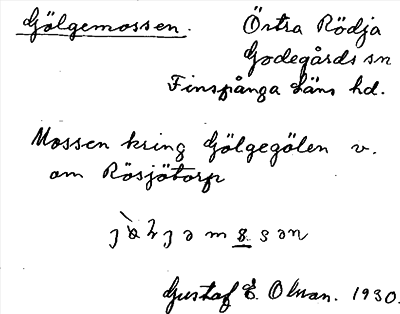 Gölgemossen.
Östra Rödja
Godegårds sn
Finspånga läns hd.
Mossen kring Gölgegölen v.
om Rösjötorp
Gustaf E. Olsson. 1930.